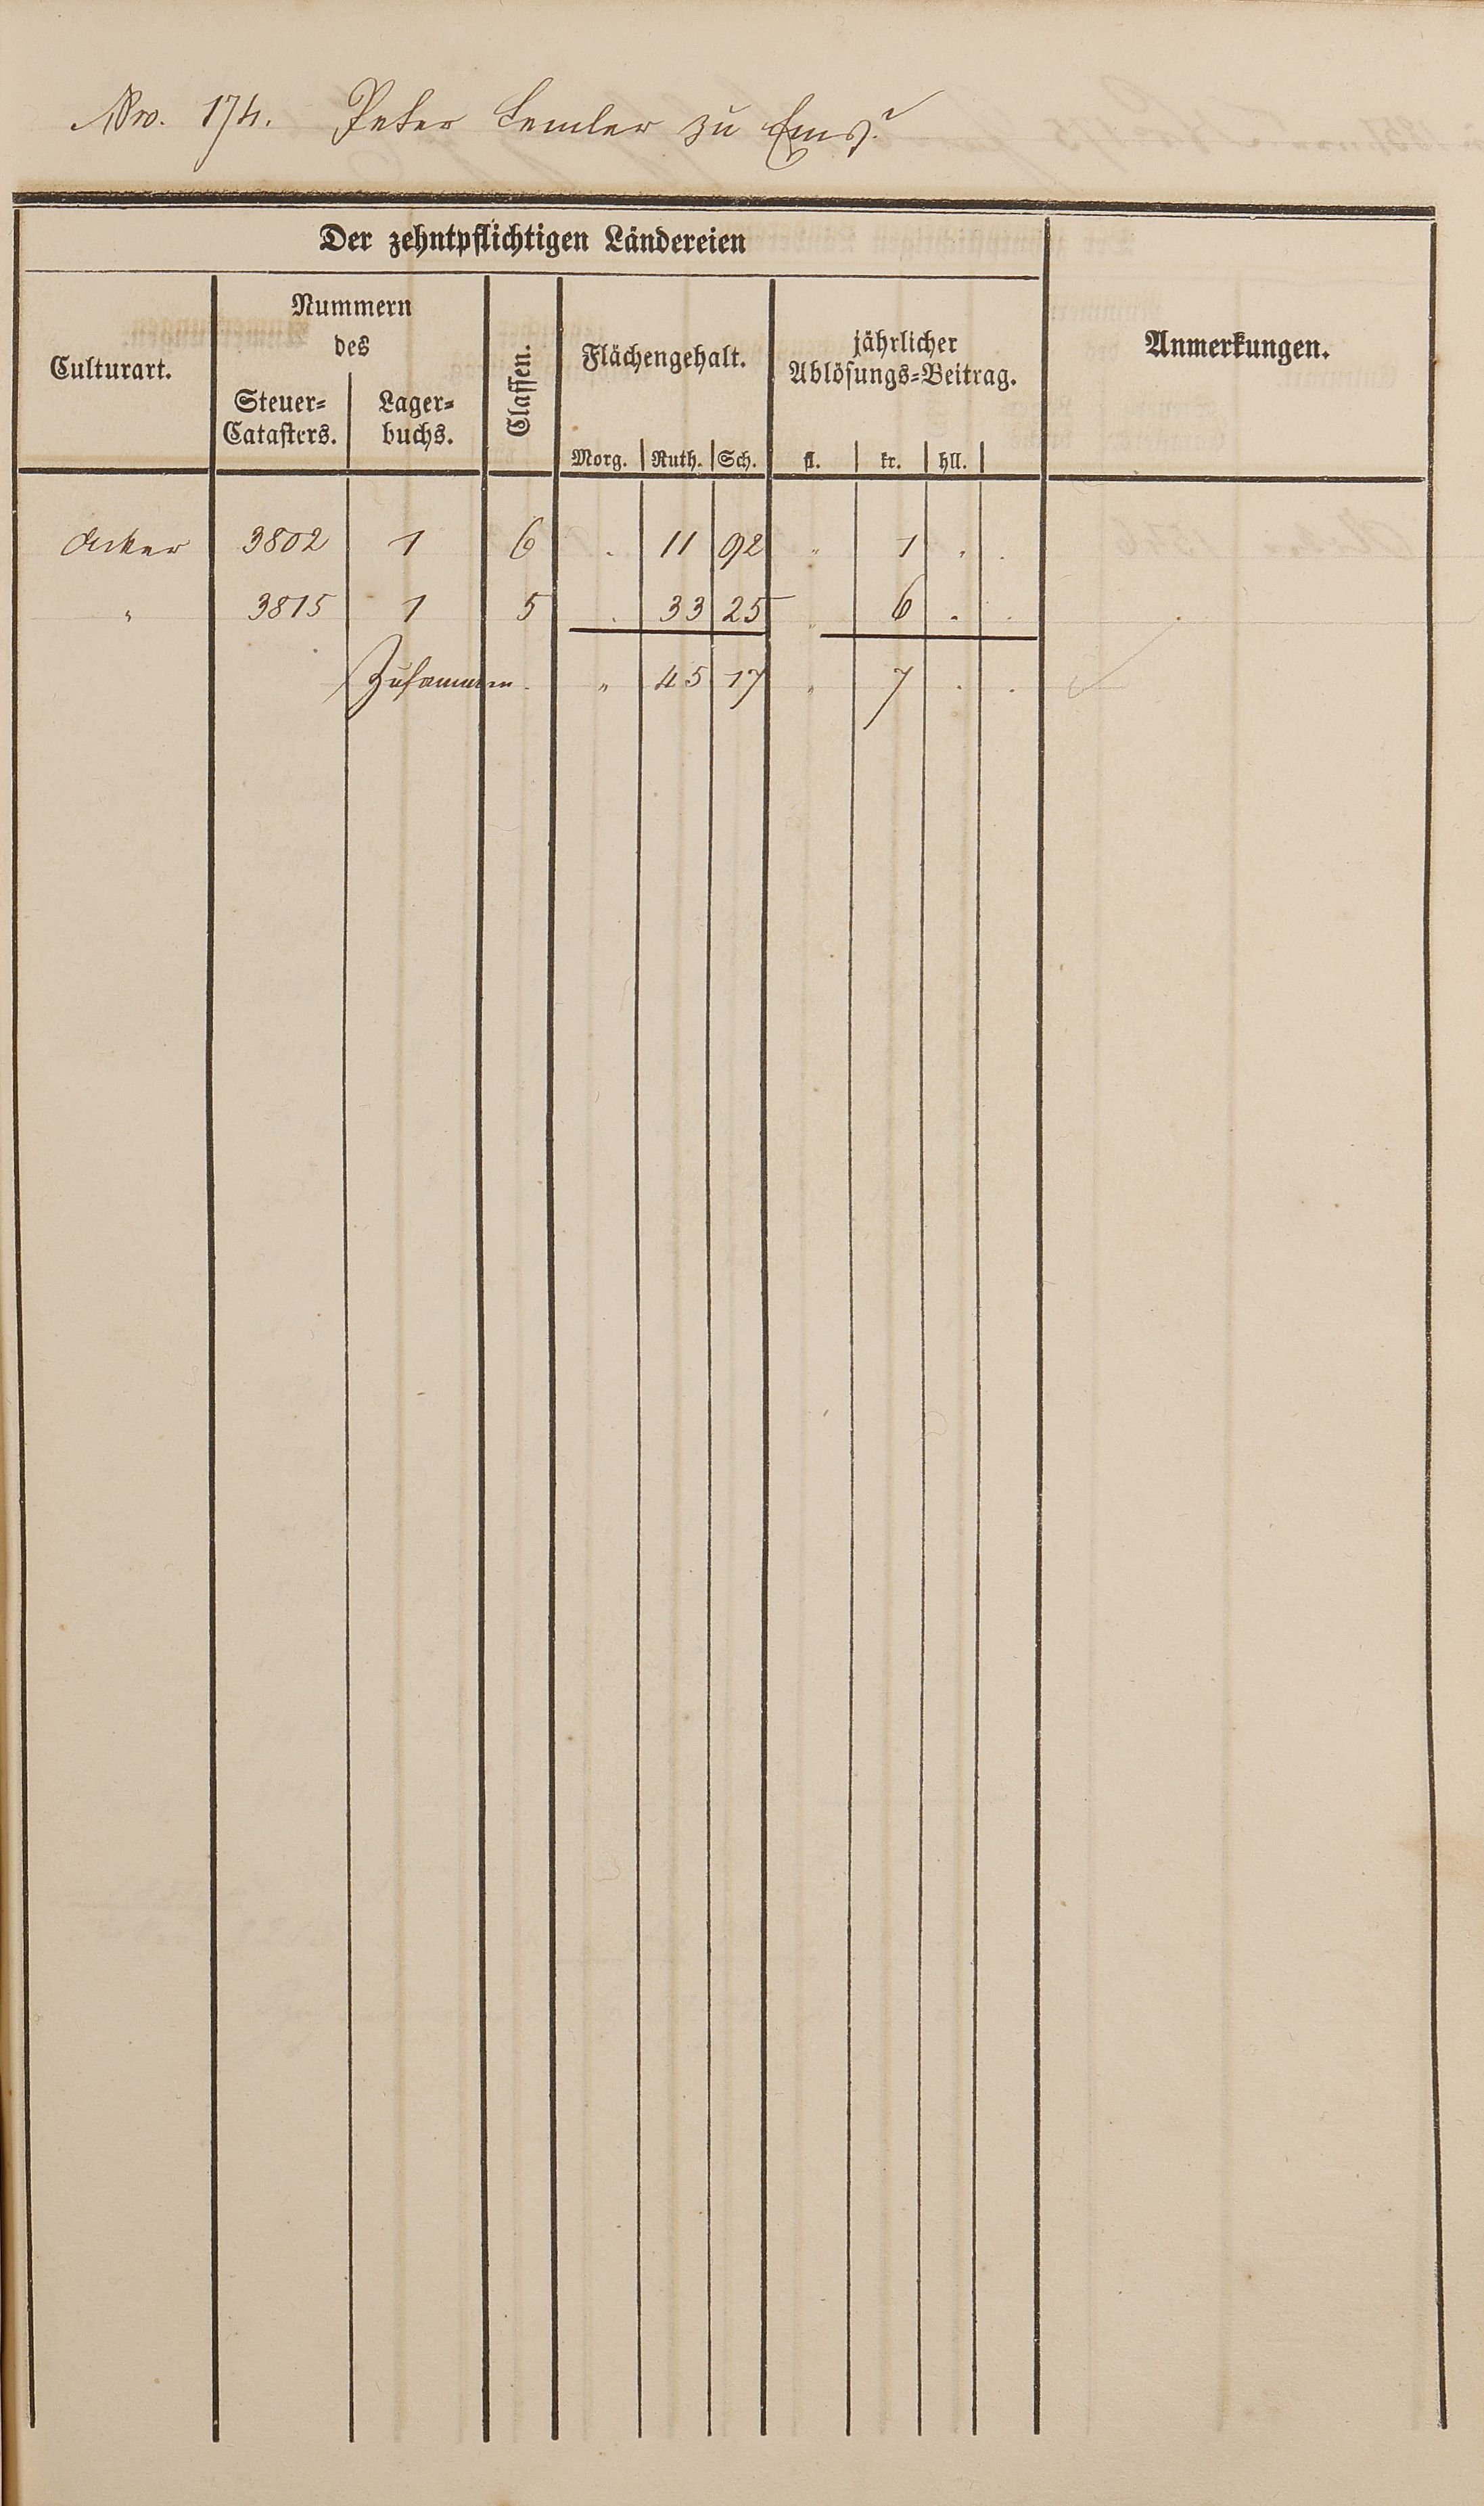 Nro. 174. Peter Lemler zu Ems.
Der zehntpflichtigen Ländereien
Culturart.
Nummern
des
Steuer-
Catasters.
Lager-
buchs.
Classen.
Flächengehalt.
Morg. Ruth. Sch.
jährlicher
Ablösungs-Beitrag.
fl. kr. hll.
Anmerkungen.
Acker 3802 1 6 . 11 92 " 1 . .
" 3815 1 5 . 33 25 " 6 . .
Zusammen. " 45 17 " 7 . .